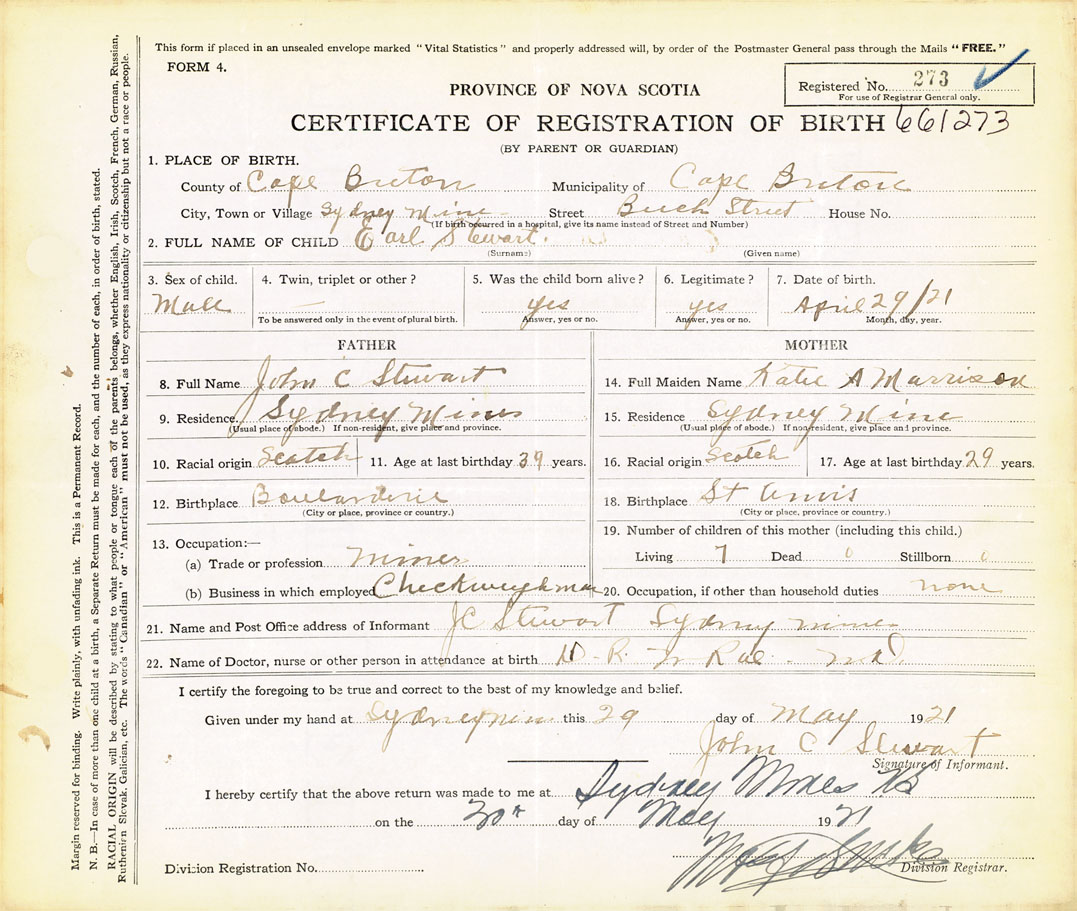 This form if placed in an unsealed envelope marked "Vital Statistics" and properly addressed will, by order of the Postmaster General pass through the Mails "FREE."
FORM 4.
Registered No. 273
For use of Registrar General only.
PROVINCE OF NOVA SCOTIA
CERTIFICATE OF REGISTRATION OF BIRTH 661273
(BY PARENT OR GUARDIAN)
1. PLACE OF BIRTH.
County of Cape Breton Municipality of Cape Breton
City, Town or Village Sydney Mine Street Beech Street House No.
(If birth occurred in a hospital, give its name instead of Street and Number)
2. FULL NAME OF CHILD Earl Stewart.
(Surname) (Given name)
3. Sex of child. 4. Twin, triplet or other? 5. Was the child born alive? 6. Legitimate? 7. Date of birth.
Male — yes yes April 29/21
To be answered only in the event of plural birth. Answer, yes or no. Answer, yes or no. Month, day, year.
FATHER MOTHER
8. Full Name John C Stewart 14. Full Maiden Name Katie A Morrison
9. Residence Sydney Mines 15. Residence Sydney Mine
(Usual place of abode.) If non-resident, give place and province. (Usual place of abode.) If non-resident, give place and province.
10. Racial origin Scotch 11. Age at last birthday 39 years. 16. Racial origin Scotch 17. Age at last birthday 29 years.
12. Birthplace Boularderie 18. Birthplace St Anns
(City or place, province or country.) (City or place, province or country.)
19. Number of children of this mother (including this child.)
13. Occupation:—
Living 7 Dead 0 Stillborn 0
(a) Trade or profession Miner
(b) Business in which employed Checkweighman 20. Occupation, if other than household duties none
21. Name and Post Office address of Informant JC Stewart Sydney mines
22. Name of Doctor, nurse or other person in attendance at birth
I certify the foregoing to be true and correct to the best of my knowledge and belief.
Given under my hand at Sydney min this 29 day of May 1921
John C Stewart
Signature of Informant.
I hereby certify that the above return was made to me at Sydney Mines
on the 30th day of May 1921
Division Registration No. Division Registrar.
Margin reserved for binding. Write plainly, with unfading ink. This is a Permanent Record.
N. B.—In case of more than one child at a birth, a Separate Return must be made for each, and the number of each, in order of birth, stated.
RACIAL ORIGIN will be described by stating to what people or tongue each of the parents belongs, whether English, Irish, Scotch, French, German, Russian,
Ruthenian Slovak, Galician, etc. The words "Canadian" or "American" must not be used, as they express nationality or citizenship but not a race or people.